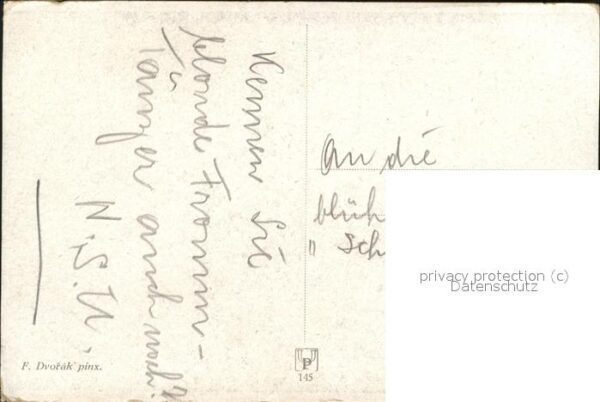 Kennen Sie
blonde From̄-
länger auch noch?
N.S.U.
An die
blüh
" Sch
privacy protection (c)
Datenschutz
F. Dvořák pinx.
P
145